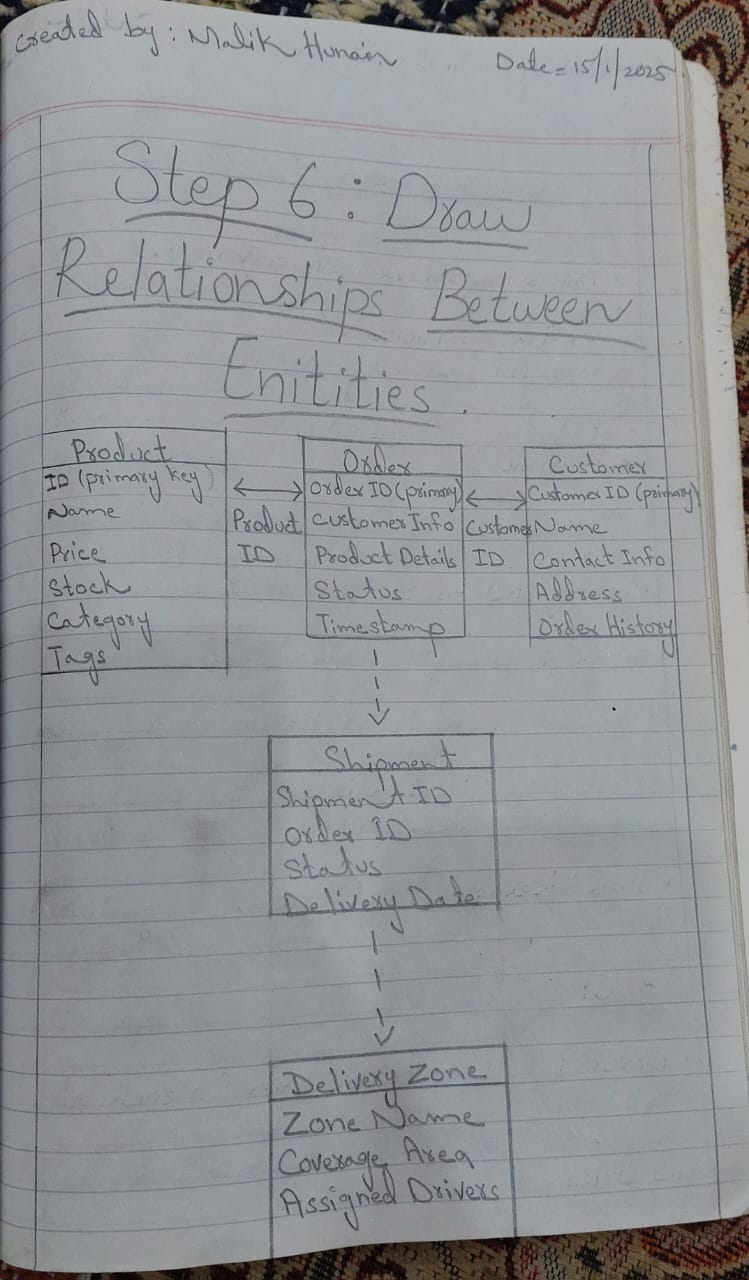 Created by: Malik Hunain
Date = 15/1/2025
Step 6: Draw
Relationships Between
Enitities.
Product
ID (primary key)
Name
Price
Stock
Category
Tags
Product
ID
Order
Order ID (primary)
Customer Info
Product Details
Status
Timestamp
Customer
ID
Customer
Customer ID (primary)
Name
Contact Info
Address
Order History
Shipment
Shipment ID
Order ID
Status
Delivery Date
Delivery Zone
Zone Name
Coverage Area
Assigned Drivers